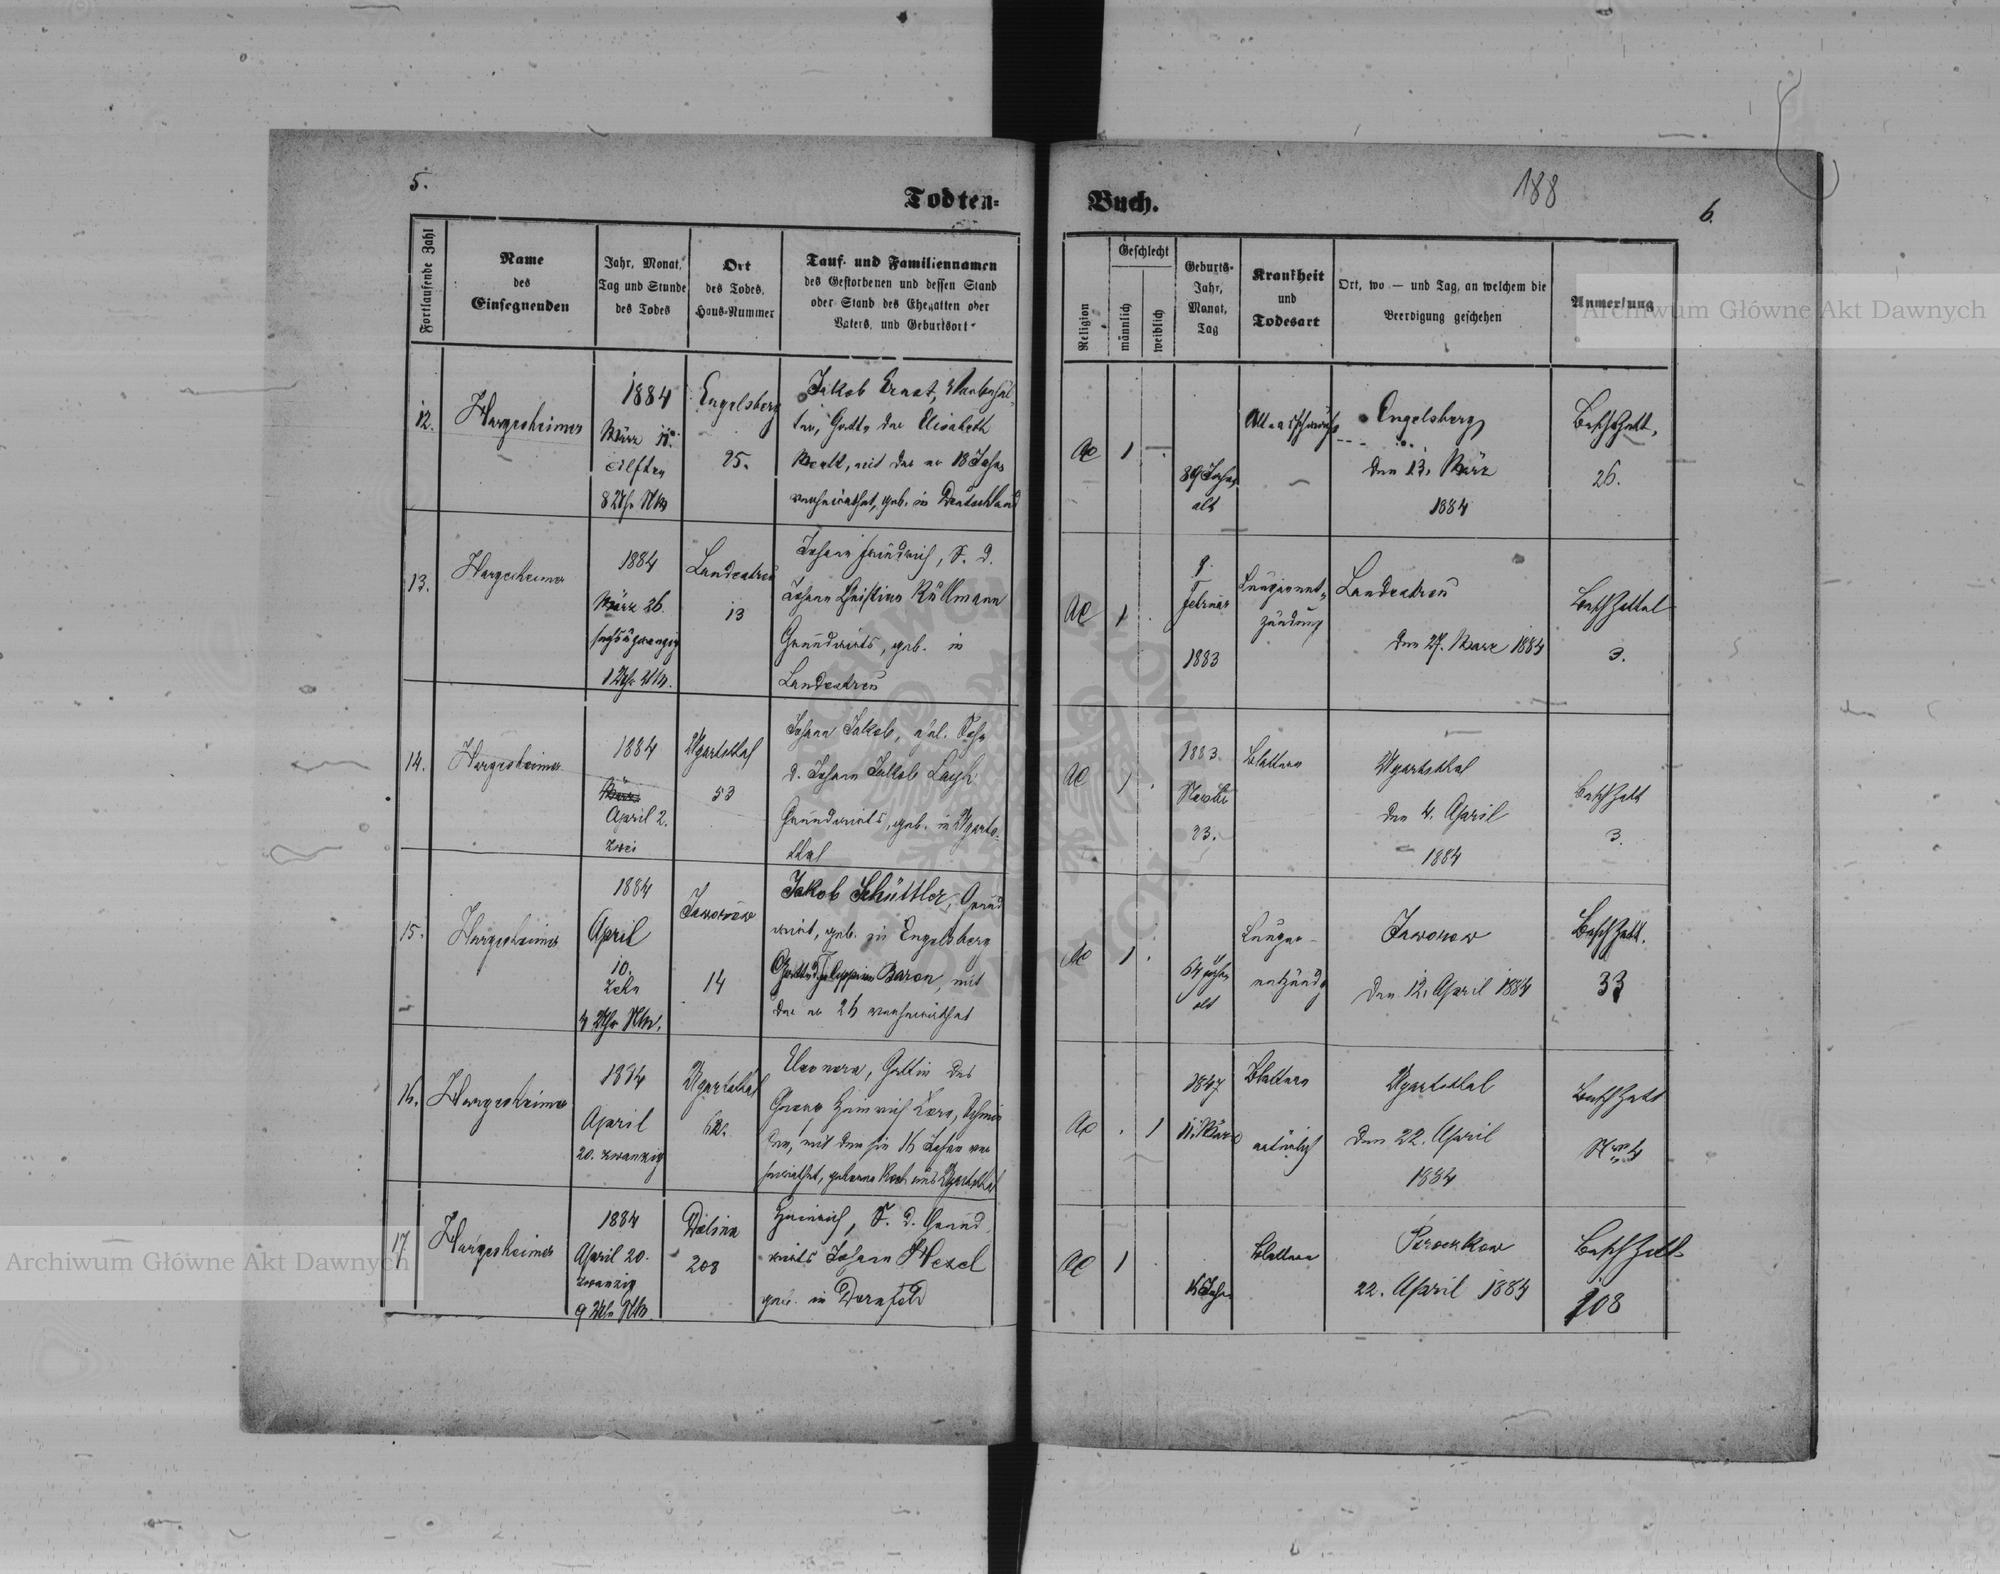 5.
Todten-
Buch.
188
6.
Fortlaufende Zahl
Name
des
Einsegnenden
Jahr, Monat,
Tag und Stunde
des Todes
Ort
des Todes,
Haus-Nummer
Tauf- und Familiennamen
des Gestorbenen und dessen Stand
oder Stand des Ehegatten oder
Vaters, und Geburtsort
Religion
Geschlecht
männlich
weiblich
Geburts-
Jahr,
Monat,
Tag
Krankheit
und
Todesart
Ort, wo — und Tag, an welchem die
Beerdigung geschehen
Anmerkung
12.
Hargesheimer
1884
März 11.
eilften
8 Uhr Nm
Engelsberg
25.
Jakob Ernst,
Gatte der Elisabeth
mit der er 18 Jahre
verheirathet, geb. in Deutschland
AC
1
—
89 Jahre
alt
Altersschwäche
Engelsberg
den 13. März
1884
BeschZettl.
26.
13.
Hargesheimer
1884
März 26.
sechsundzwanzig
1 Uhr
Landestreu
13
Johann Friedrich, S. d.
Johann Christian Rüllmann
Grundwirts, geb. in
Landestreu
AC
1
.
9.
Februar
1883
Lungenent-
zündung
Landestreu
den 27. März 1884
BeschZettel
3.
14.
Hargesheimer
1884
März
April 2.
zwei
Ugartsthal
53
Johann Jakob, ehl. Sohn
d. Johann Jakob
Grundwirts, geb. in Ugarts-
thal
AC
1
.
1883.
23.
Blattern
Ugartsthal
den 4. April
1884
BeschZettl
3.
15.
Hargesheimer
1884
April
10.
Zehn
4 Uhr Nm.
Jaworow
14
Jakob Schüttler, Grund
wirt, geb. in Engelsberg
Baron, mit
der er 26 verheirathet
AC
1
.
64 Jahre
alt
Lungen-
entzündg
Jaworow
den 12. April 1884
BeschZettl.
33
16.
Hargesheimer
1884
April
20. zwanzig
Ugartsthal
62.
Eleonora, Gattin des
Georg Heinrich
mit dem sie 16 Jahre ver
heirathet, geborne Koch aus Ugartsthal
AC
.
1
1847
11. März
Blattern
natürlich
Ugartsthal
den 22. April
1884
BeschZettl
Nro 4
17.
Hargesheimer
1884
April 20.
zwanzig
9 Uhr Nm.
Dolina
208
Heinrich, S. d. Grund
wirts Johann Hexel
geb. in Dornfeld
AC
1
.
Blattern
22. April 1884
BeschZettl
208
Archiwum Główne Akt Dawnych
Archiwum Główne Akt Dawnych